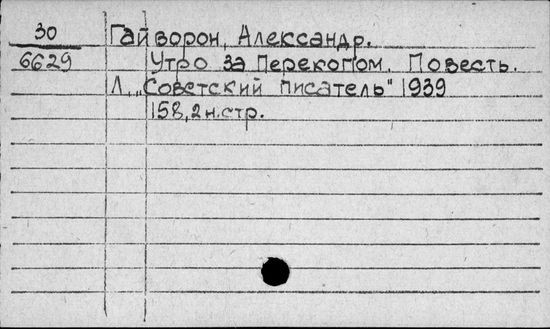 30 Гайворон, Александр.
6629 Утро за Перекопом. Повесть.
Л., „Советский писатель" 1939
158, 2 н. стр.